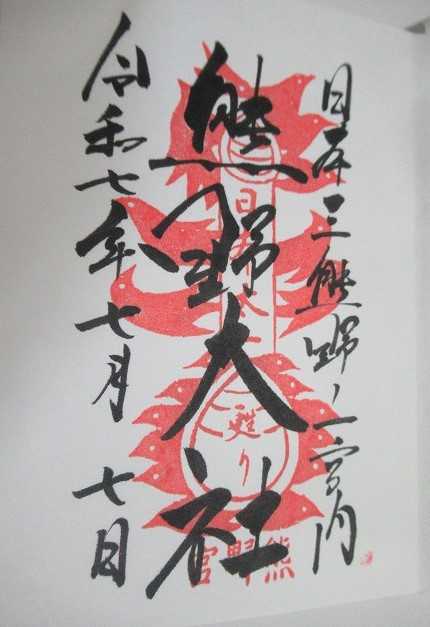 日本三熊野ノ一宮内
熊野大社
令和七年七月七日
甦り
熊野宮